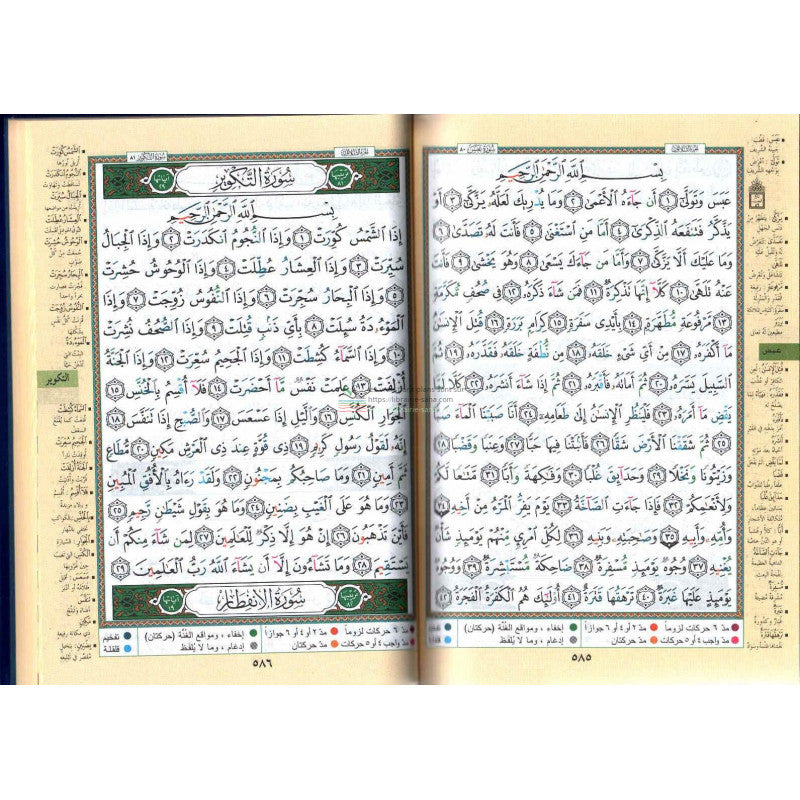 سورة عبس ٨٠
بِسْمِ اللَّهِ الرَّحْمَٰنِ الرَّحِيمِ
عَبَسَ وَتَوَلَّىٰ ١ أَن جَاءَهُ الْأَعْمَىٰ ٢ وَمَا يُدْرِيكَ لَعَلَّهُ يَزَّكَّىٰ ٣ أَوْ
يَذَّكَّرُ فَتَنفَعَهُ الذِّكْرَىٰ ٤ أَمَّا مَنِ اسْتَغْنَىٰ ٥ فَأَنتَ لَهُ تَصَدَّىٰ ٦
وَمَا عَلَيْكَ أَلَّا يَزَّكَّىٰ ٧ وَأَمَّا مَن جَاءَكَ يَسْعَىٰ ٨ وَهُوَ يَخْشَىٰ ٩ فَأَنتَ
عَنْهُ تَلَهَّىٰ ١٠ كَلَّا إِنَّهَا تَذْكِرَةٌ ١١ فَمَن شَاءَ ذَكَرَهُ ١٢ فِي صُحُفٍ مُّكَرَّمَةٍ
١٣ مَّرْفُوعَةٍ مُّطَهَّرَةٍ ١٤ بِأَيْدِي سَفَرَةٍ ١٥ كِرَامٍ بَرَرَةٍ ١٦ قُتِلَ الْإِنسَانُ
مَا أَكْفَرَهُ ١٧ مِنْ أَيِّ شَيْءٍ خَلَقَهُ ١٨ مِن نُّطْفَةٍ خَلَقَهُ فَقَدَّرَهُ ١٩ ثُمَّ
السَّبِيلَ يَسَّرَهُ ٢٠ ثُمَّ أَمَاتَهُ فَأَقْبَرَهُ ٢١ ثُمَّ إِذَا شَاءَ أَنشَرَهُ ٢٢ كَلَّا لَمَّا
يَقْضِ مَا أَمَرَهُ ٢٣ فَلْيَنظُرِ الْإِنسَانُ إِلَىٰ طَعَامِهِ ٢٤ أَنَّا صَبَبْنَا الْمَاءَ صَبًّا
٢٥ ثُمَّ شَقَقْنَا الْأَرْضَ شَقًّا ٢٦ فَأَنبَتْنَا فِيهَا حَبًّا ٢٧ وَعِنَبًا وَقَضْبًا ٢٨
وَزَيْتُونًا وَنَخْلًا ٢٩ وَحَدَائِقَ غُلْبًا ٣٠ وَفَاكِهَةً وَأَبًّا ٣١ مَّتَاعًا لَّكُمْ
وَلِأَنْعَامِكُمْ ٣٢ فَإِذَا جَاءَتِ الصَّاخَّةُ ٣٣ يَوْمَ يَفِرُّ الْمَرْءُ مِنْ أَخِيهِ ٣٤
وَأُمِّهِ وَأَبِيهِ ٣٥ وَصَاحِبَتِهِ وَبَنِيهِ ٣٦ لِكُلِّ امْرِئٍ مِّنْهُمْ يَوْمَئِذٍ شَأْنٌ
يُغْنِيهِ ٣٧ وُجُوهٌ يَوْمَئِذٍ مُّسْفِرَةٌ ٣٨ ضَاحِكَةٌ مُّسْتَبْشِرَةٌ ٣٩ وَوُجُوهٌ
يَوْمَئِذٍ عَلَيْهَا غَبَرَةٌ ٤٠ تَرْهَقُهَا قَتَرَةٌ ٤١ أُولَٰئِكَ هُمُ الْكَفَرَةُ الْفَجَرَةُ ٤٢
مدّ ٦ حركات لزوماً مدّ ٢ أو ٤ أو ٦ جوازاً إخفاء ، ومواقع الغُنَّة (حركتان) تفخيم
مدّ واجب ٤ أو ٥ حركات مدّ حركتان إدغام ، وما لا يُلفَظ قلقلة
٥٨٥
عبس
سورة التكوير ٨١
سُورَةُ التَّكْوِيرِ
بِسْمِ اللَّهِ الرَّحْمَٰنِ الرَّحِيمِ
إِذَا الشَّمْسُ كُوِّرَتْ ١ وَإِذَا النُّجُومُ انكَدَرَتْ ٢ وَإِذَا الْجِبَالُ
سُيِّرَتْ ٣ وَإِذَا الْعِشَارُ عُطِّلَتْ ٤ وَإِذَا الْوُحُوشُ حُشِرَتْ
٥ وَإِذَا الْبِحَارُ سُجِّرَتْ ٦ وَإِذَا النُّفُوسُ زُوِّجَتْ ٧ وَإِذَا
الْمَوْءُودَةُ سُئِلَتْ ٨ بِأَيِّ ذَنبٍ قُتِلَتْ ٩ وَإِذَا الصُّحُفُ نُشِرَتْ
١٠ وَإِذَا السَّمَاءُ كُشِطَتْ ١١ وَإِذَا الْجَحِيمُ سُعِّرَتْ ١٢ وَإِذَا الْجَنَّةُ
أُزْلِفَتْ ١٣ عَلِمَتْ نَفْسٌ مَّا أَحْضَرَتْ ١٤ فَلَا أُقْسِمُ بِالْخُنَّسِ ١٥
الْجَوَارِ الْكُنَّسِ ١٦ وَاللَّيْلِ إِذَا عَسْعَسَ ١٧ وَالصُّبْحِ إِذَا تَنَفَّسَ ١٨
إِنَّهُ لَقَوْلُ رَسُولٍ كَرِيمٍ ١٩ ذِي قُوَّةٍ عِندَ ذِي الْعَرْشِ مَكِينٍ ٢٠ مُّطَاعٍ
ثَمَّ أَمِينٍ ٢١ وَمَا صَاحِبُكُم بِمَجْنُونٍ ٢٢ وَلَقَدْ رَآهُ بِالْأُفُقِ الْمُبِينِ
٢٣ وَمَا هُوَ عَلَى الْغَيْبِ بِضَنِينٍ ٢٤ وَمَا هُوَ بِقَوْلِ شَيْطَانٍ رَّجِيمٍ ٢٥
فَأَيْنَ تَذْهَبُونَ ٢٦ إِنْ هُوَ إِلَّا ذِكْرٌ لِّلْعَالَمِينَ ٢٧ لِمَن شَاءَ مِنكُمْ أَن
يَسْتَقِيمَ ٢٨ وَمَا تَشَاءُونَ إِلَّا أَن يَشَاءَ اللَّهُ رَبُّ الْعَالَمِينَ ٢٩
سُورَةُ الِانفِطَارِ
مدّ ٦ حركات لزوماً مدّ ٢ أو ٤ أو ٦ جوازاً إخفاء ، ومواقع الغُنَّة (حركتان) تفخيم
مدّ واجب ٤ أو ٥ حركات مدّ حركتان إدغام ، وما لا يُلفَظ قلقلة
٥٨٦
التكوير
https://librairie-sana.com